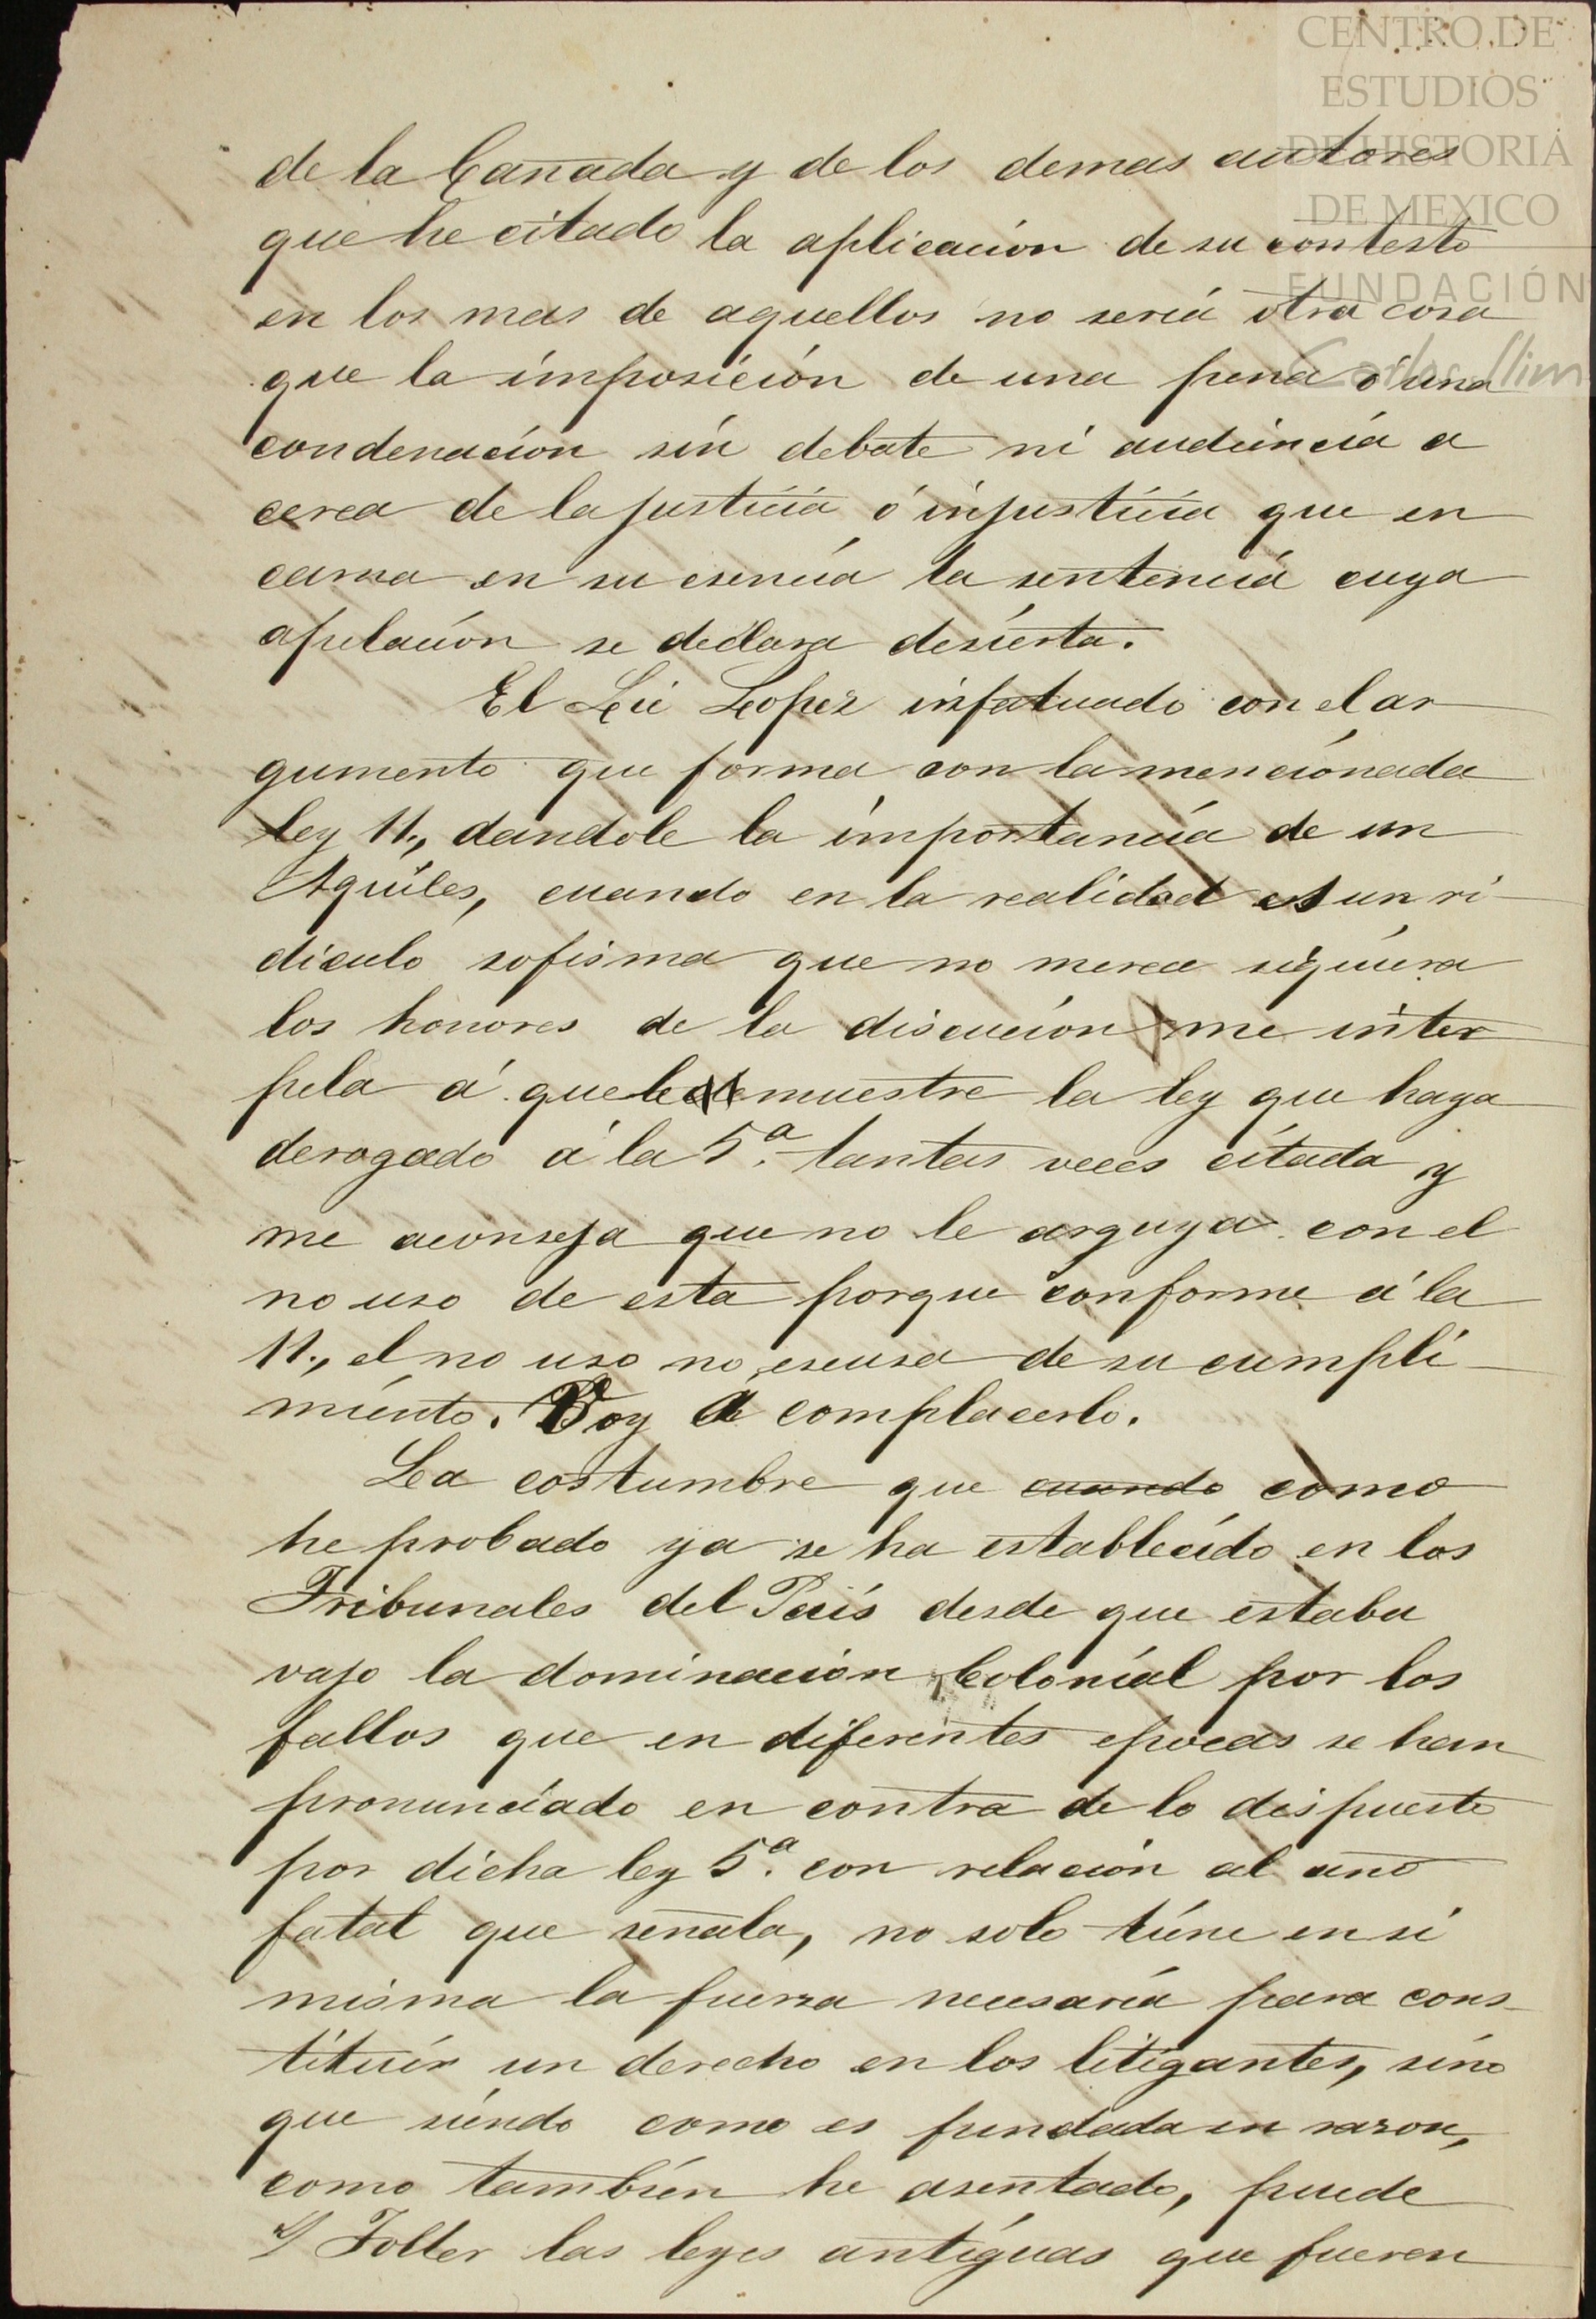 CENTRO DE
ESTUDIOS
DE HISTORIA
DE MEXICO
FUNDACIÓN
Carlos Slim
de la Cañada y de los demas autores
que he citado la aplicacion de su contesto
en los mas de aquellos no seria otra cosa
que la imposición de una pena ó una
condenacion sin debate ni audiencia a
cerca de la justicia ó injusticia que en
carna en su esencia la sentencia cuya
apelacion se declara desierta.
El Lic Lopez infatuado con el ar
gumento que forma con la mencionada
ley 11., dandole la importancia de un
Aquiles, cuando en la realidad es un ri
diculo sofisma que no merece siquiera
los honores de la discucion me inter
pela á que le muestre la ley que haya
derogado á la 5.ª tantas veces citada y
me aconseja que no le arguya con el
no uso de esta porque conforme á la
11., el no uso no escusa de su cumpli
miento. Boy á complacerlo.
La costumbre que cuando como
he probado ya se ha establecido en los
Tribunales del País desde que estaba
vajo la dominacion Colonial por los
fallos que en diferentes epocas se han
pronunciado en contra de lo dispuesto
por dicha ley 5.ª con relacion al año
fatal que señala, no solo tiene en si
misma la fuerza necesaria para cons
tituir un derecho en los litigantes, sino
que siendo como es fundada en razon,
como tambien he asentado, puede
Toller las leyes antiguas que fueren